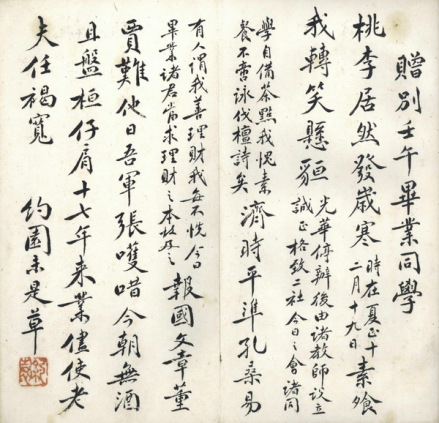 贈別壬午畢業同學
桃李居然發歲寒 時在夏正十二月十九日 素飱
我轉笑懸貆 光華停辦後由諸教師設立誠正格致二社今日之會諸同
學自備茶點我愧素餐不啻詠伐檀詩矣 濟時平準孔桑易
有人謂我善理財我每不悦今日畢業諸君當求理財之本故及之 報國文章董
賈難他日吾軍張嚄唶今朝無酒
且盤桓仔肩十七年来業儘使老
夫任褐寬 約園未是草